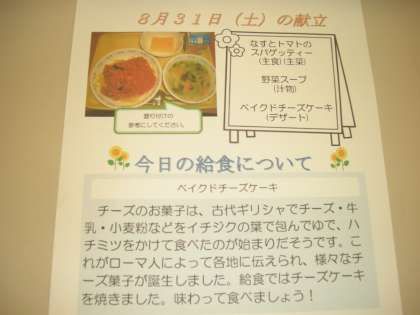 8月31日（土）の献立
なすとトマトの
スパゲッティー
(主食)(主菜)
野菜スープ
(汁物)
ベイクドチーズケーキ
(デザート)
盛り付けの
参考にしてください。
今日の給食について
ベイクドチーズケーキ
チーズのお菓子は、古代ギリシャでチーズ・牛
乳・小麦粉などをイチジクの葉で包んでゆで、ハ
チミツをかけて食べたのが始まりだそうです。こ
れがローマ人によって各地に伝えられ、様々なチ
ーズ菓子が誕生しました。給食ではチーズケーキ
を焼きました。味わって食べましょう！